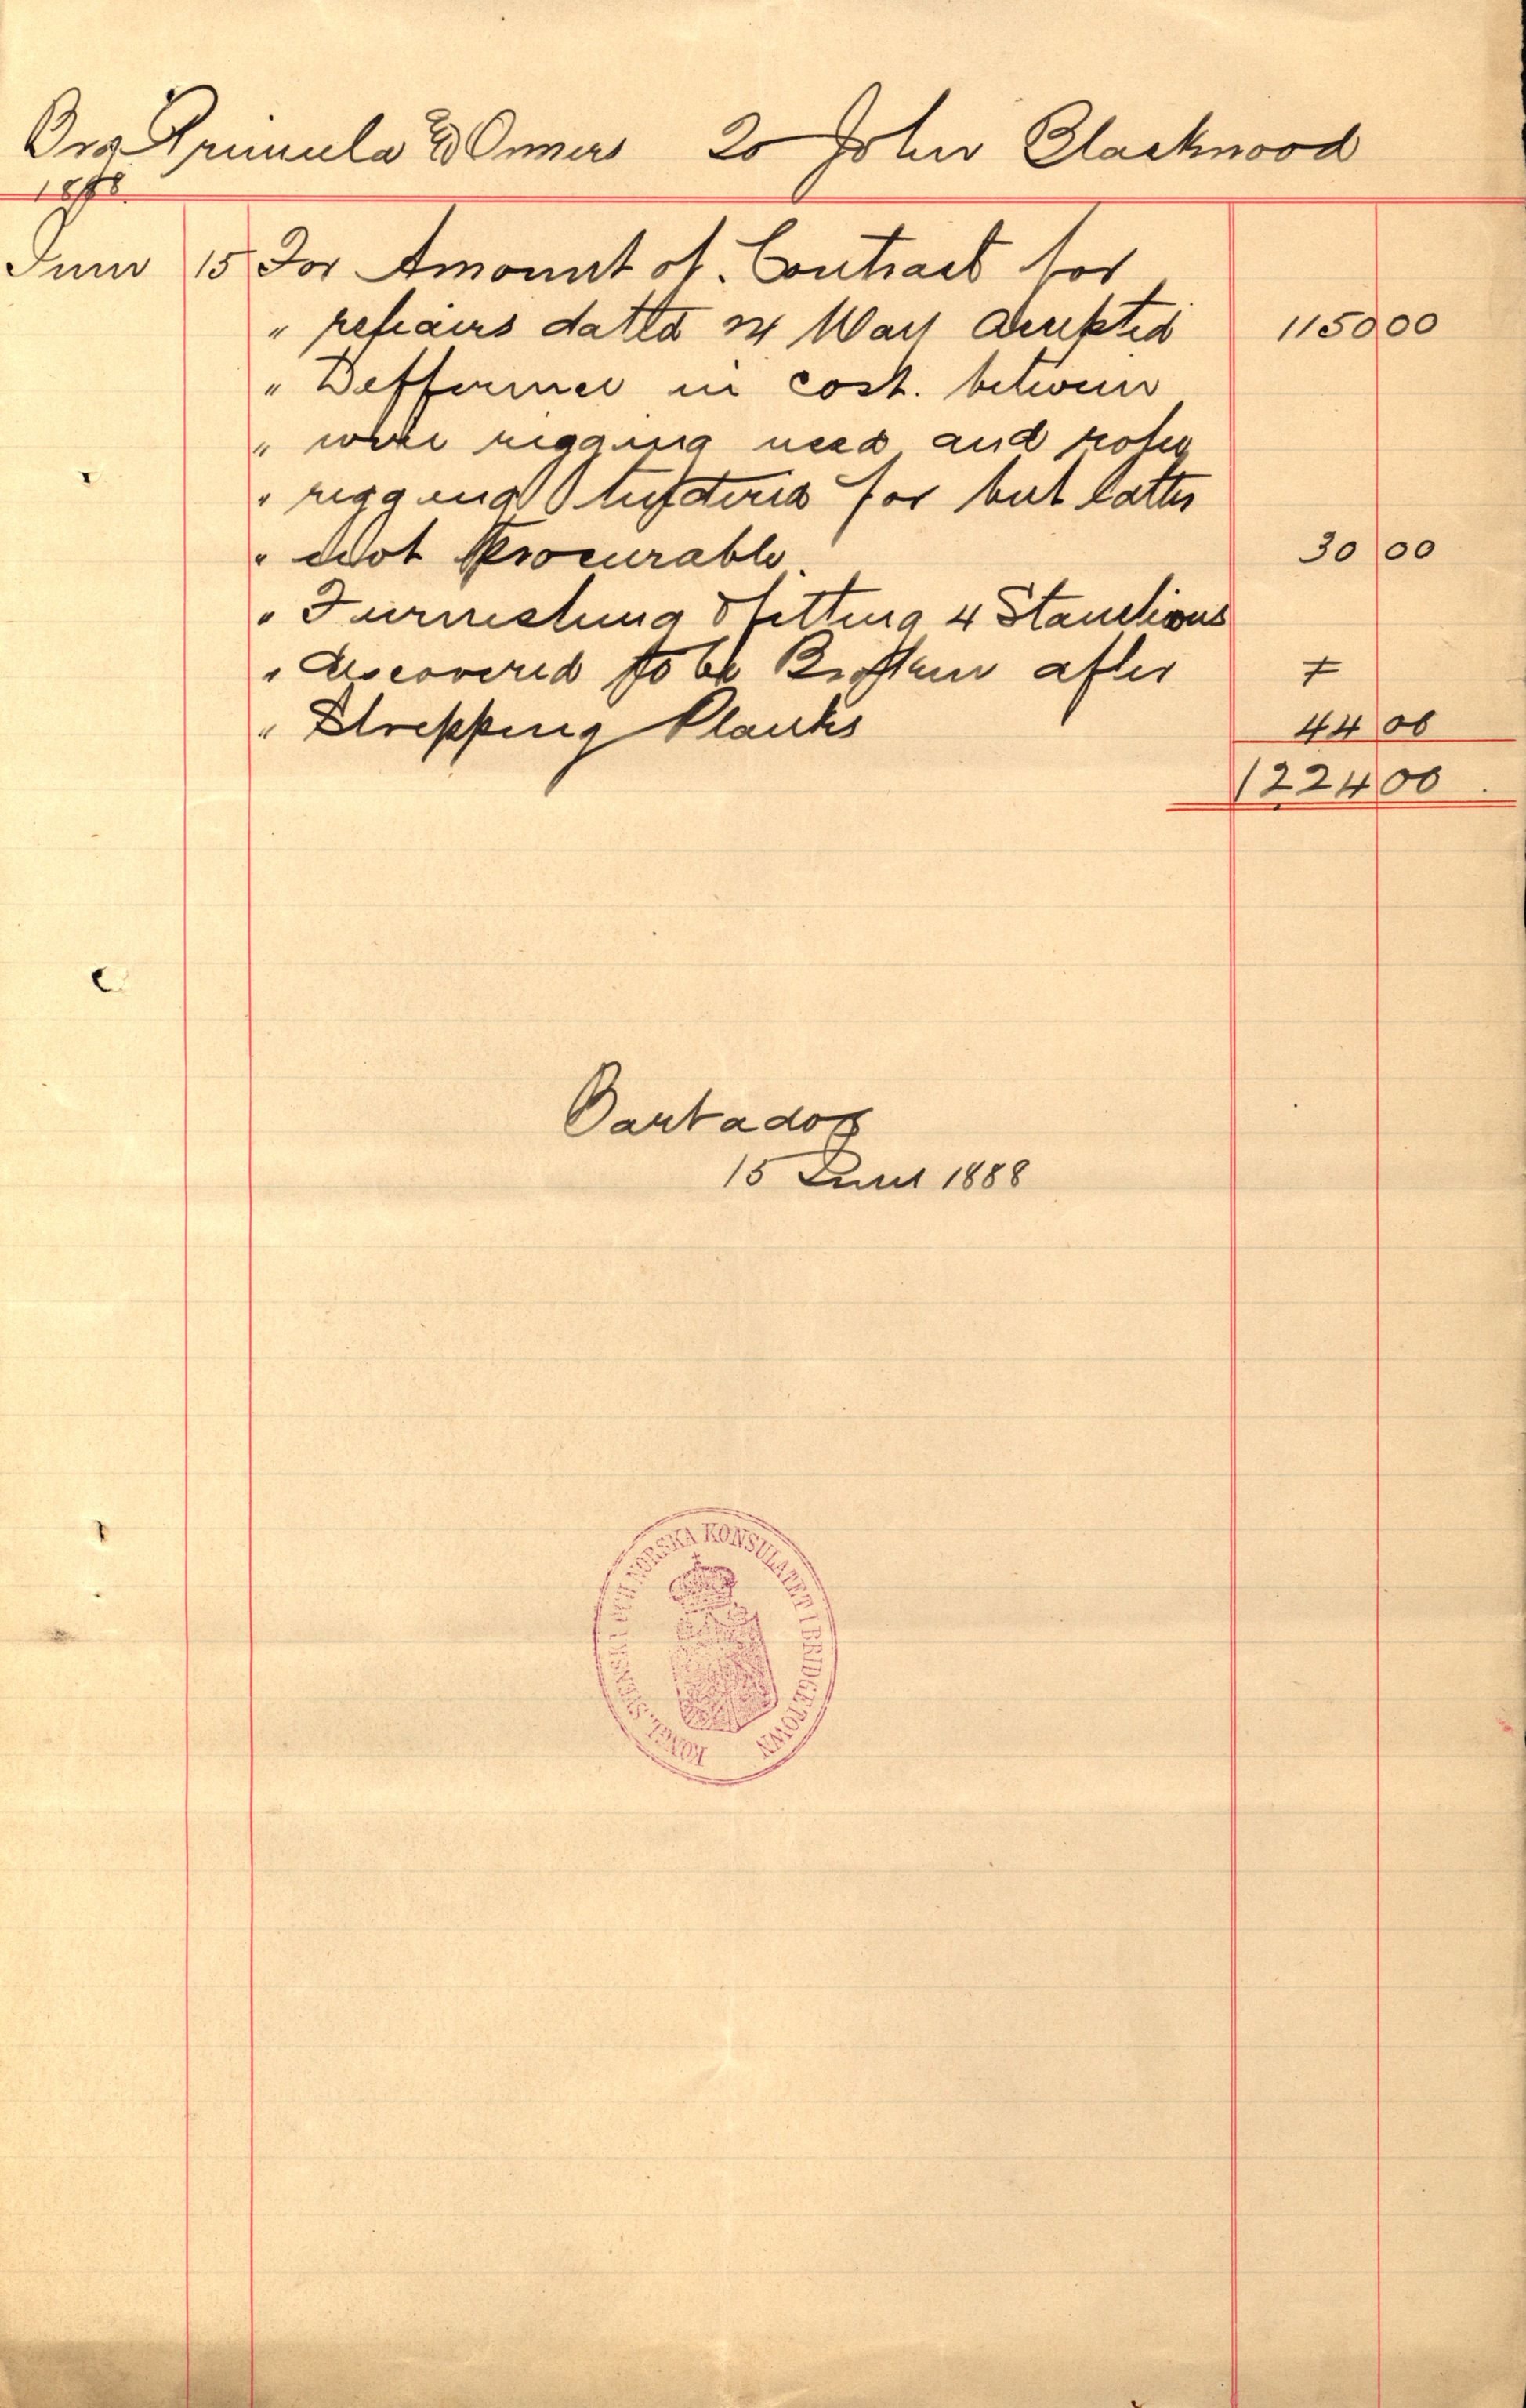 Brg Primula & Owners To John Blackwood
1888
June 15 For Amount of Contract for
" repairs dated 24 May accepted 1150 00
" Defference in cost. between
" wire rigging used and rope
" rigging for but latter
" not Procurable. 30 00
" Furnishing & fitting 4 Stanchions
" discovered to be Broken after
" Stripping Planks 44 00
1224 00
Barbados
15 June 1888
KONGL. SVENSKA OCH NORSKA KONSULATET I BRIDGETOWN